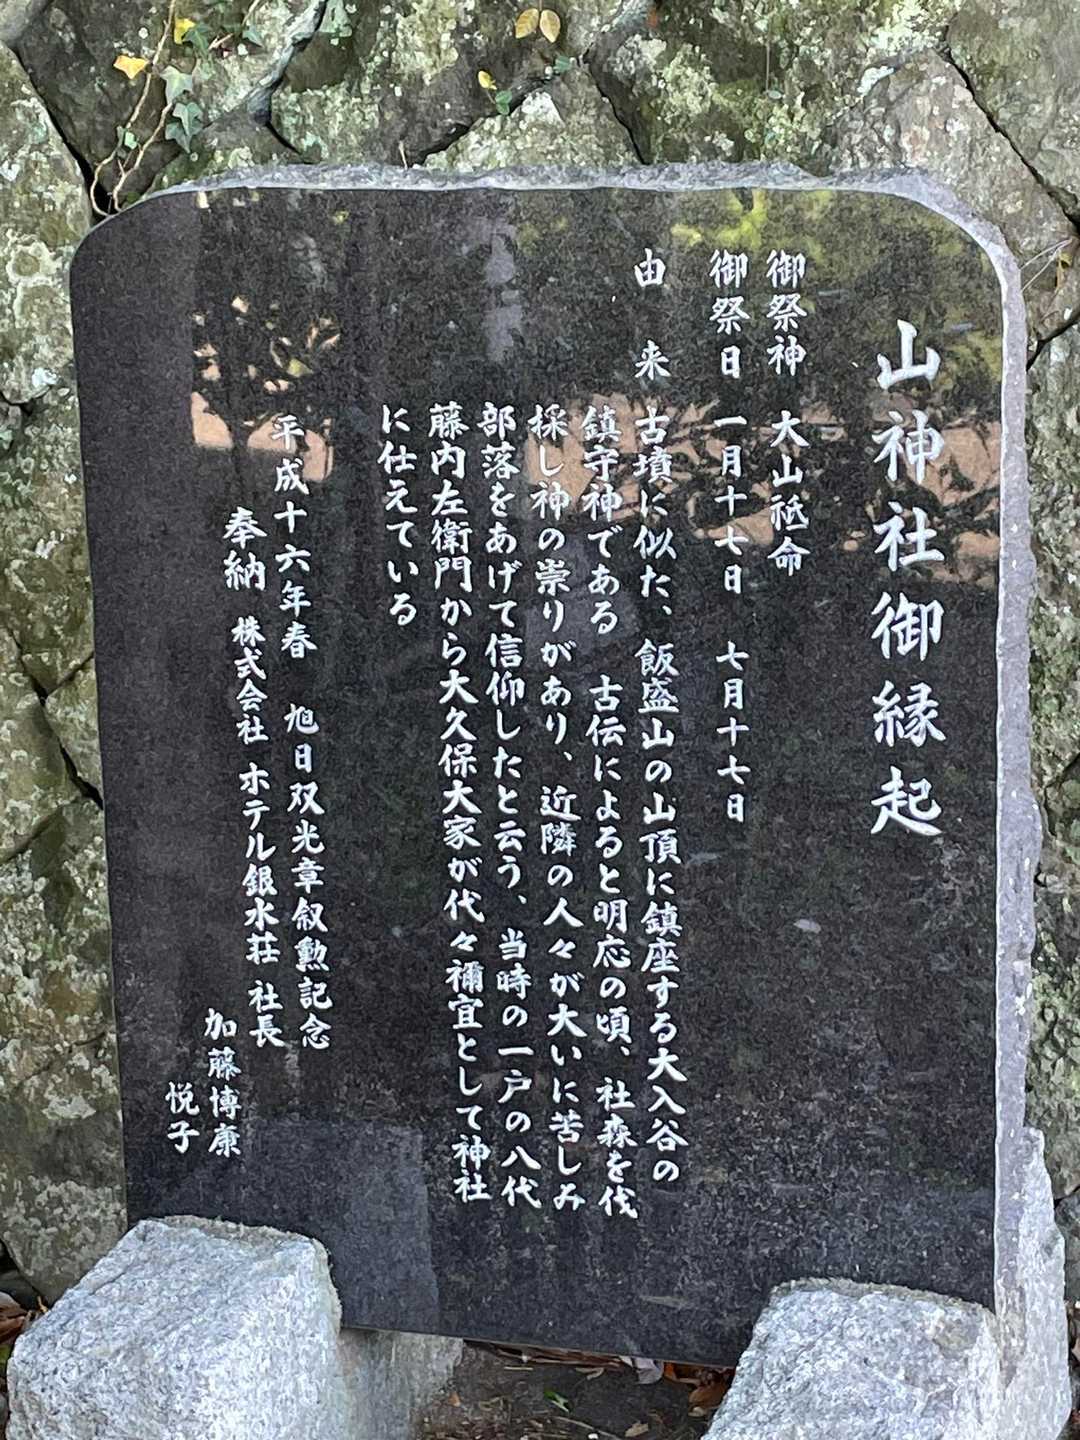 山神社御縁起
御祭神　大山祗命
御祭日　一月十七日　七月十七日
由　来　古墳に似た、飯盛山の山頂に鎮座する大入谷の
鎮守神である　古伝によると明応の頃、社森を伐
採し神の祟りがあり、近隣の人々が大いに苦しみ
部落をあげて信仰したと云う、当時の一戸の八代
藤内左衛門から大久保大家が代々禰宜として神社
に仕えている
平成十六年春　旭日双光章叙勲記念
奉納　株式会社　ホテル銀水荘　社長
加藤博康
悦子